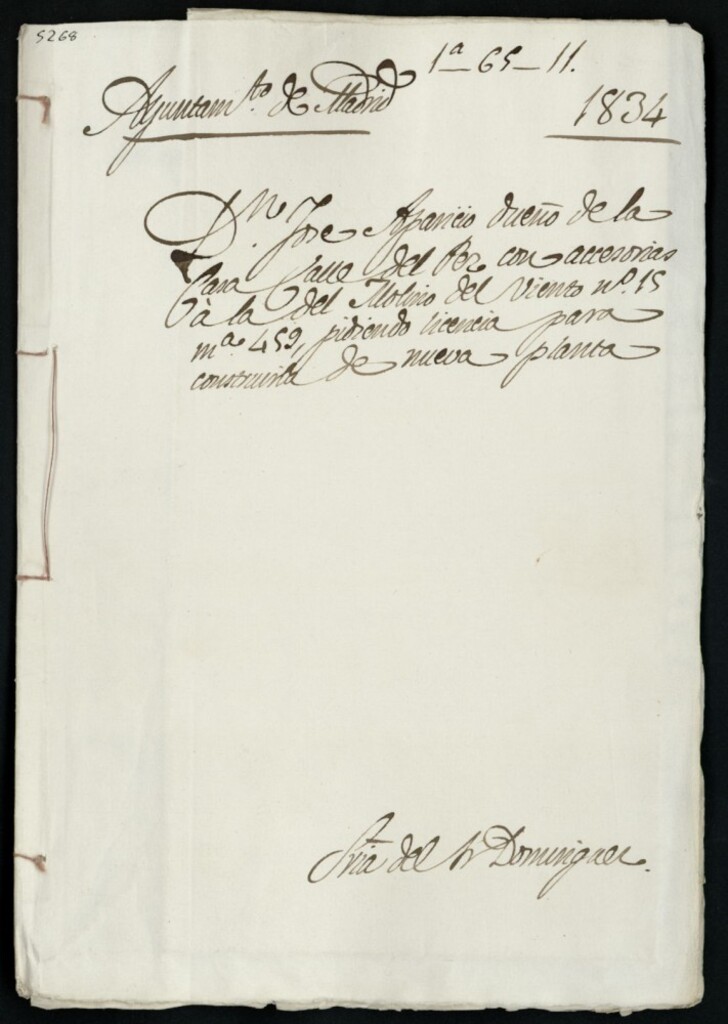 5268
1ª–65–11.
Ayuntamto. de Madrid
1834
Dn. Jose Aparicio dueño de la
Casa Calle del Pez con accesorias
à la del Molino del Viento nº. 15
mª. 459, pidiendo licencia para
construirla de nueva planta
Sria del Sr Dominguez.